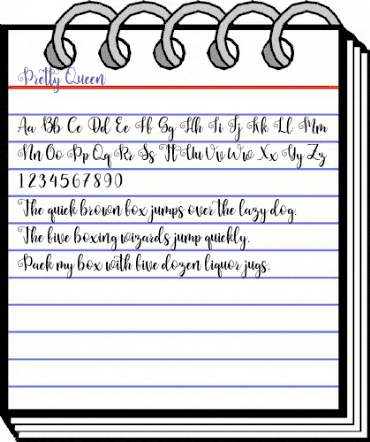 Pretty Queen
Aa Bb Cc Dd Ee Ff Gg Hh Ii Jj Kk Ll Mm
Nn Oo Pp Qq Rr Ss Tt Uu Vv Ww Xx Yy Zz
1234567890
The quick brown fox jumps over the lazy dog.
The five boxing wizards jump quickly.
Pack my box with five dozen liquor jugs.